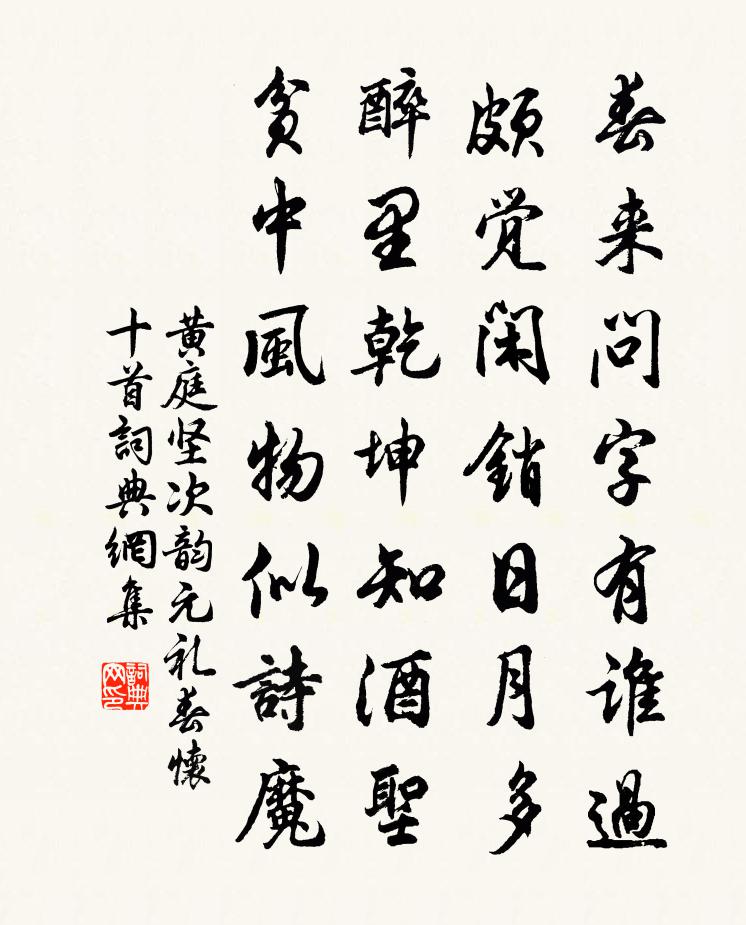 春来问字有谁過
頗觉闲銷日月多
醉里乾坤知酒聖
貧中風物似詩魔
黄庭坚次韵元礼春懷
十首詞典網集
詞典网印